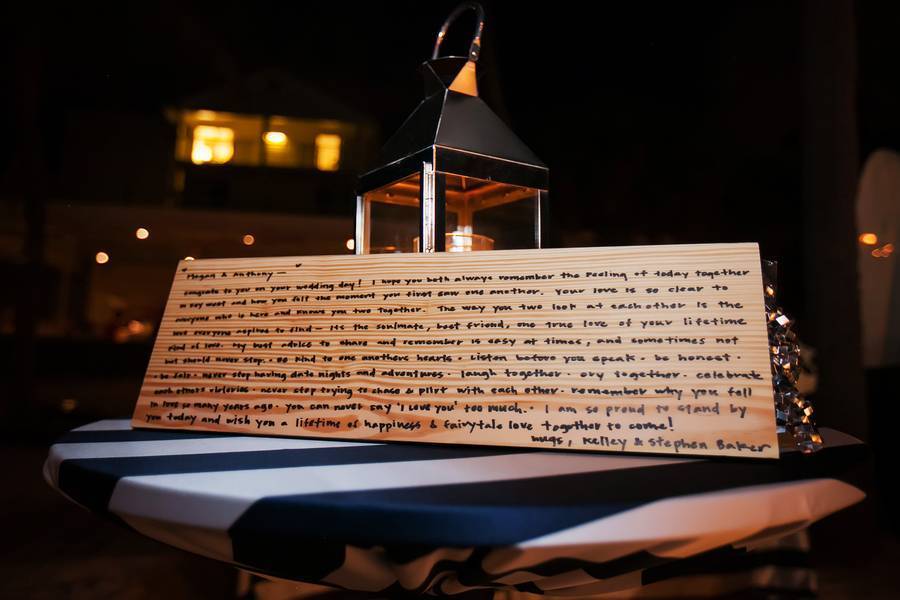 Megan & Anthony —
congrats to you on your wedding day! I hope you both always remember the feeling of today together
and how you felt the moment you first saw one another. Your love is so clear to
everyone who is here and knows you two together. The way you two look at each other is the
everyone aspires to find – its the soulmate, best friend, one true love of your lifetime
kind of love. My best advice to share and remember is easy at times, and sometimes not
but should never stop. Be kind to one anothers hearts. Listen before you speak. be honest.
be fair. never stop having date nights and adventures. laugh together. cry together. celebrate
each others victories. never stop trying to chase & flirt with each other. remember why you fell
in love so many years ago. you can never say 'I love you' too much. I am so proud to stand by
you today and wish you a lifetime of happiness & fairytale love together to come!
hugs, Kelley & Stephen Baker